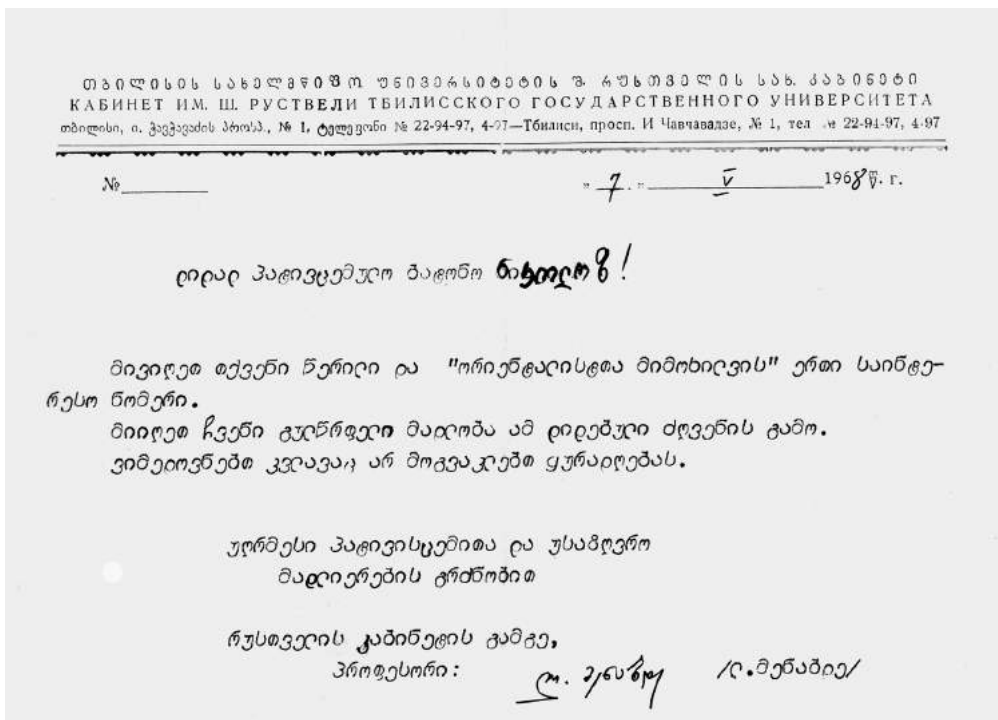 თბილისის სახელმწიფო უნივერსიტეტის შ. რუსთველის სახ. კაბინეტი
КАБИНЕТ ИМ. Ш. РУСТВЕЛИ ТБИЛИССКОГО ГОСУДАРСТВЕННОГО УНИВЕРСИТЕТА
თბილისი, ი. ჭავჭავაძის პროსპ., № 1, ტელეფონი № 22-94-97, 4-97—Тбилиси, просп. И Чавчавадзе, № 1, тел № 22-94-97, 4-97
№ „ 7 „ V 1968 წ. г.
დიდად პატივცემულო ბატონო ნიკოლოზ!
მივიღეთ თქვენი წერილი და "ორიენტალისტთა მიმოხილვის" ერთი საინტე-
რესო ნომერი.
მიიღეთ ჩვენი გულწრფელი მადლობა ამ დიდებული ძღვენის გამო.
ვიმედოვნებთ კვლავაც არ მოგვაკლებთ ყურადღებას.
უღრმესი პატივისცემითა და უსაზღვრო
მადლიერების გრძნობით
რუსთველის კაბინეტის გამგე,
პროფესორი: ლ. მენაბდე /ლ.მენაბდე/